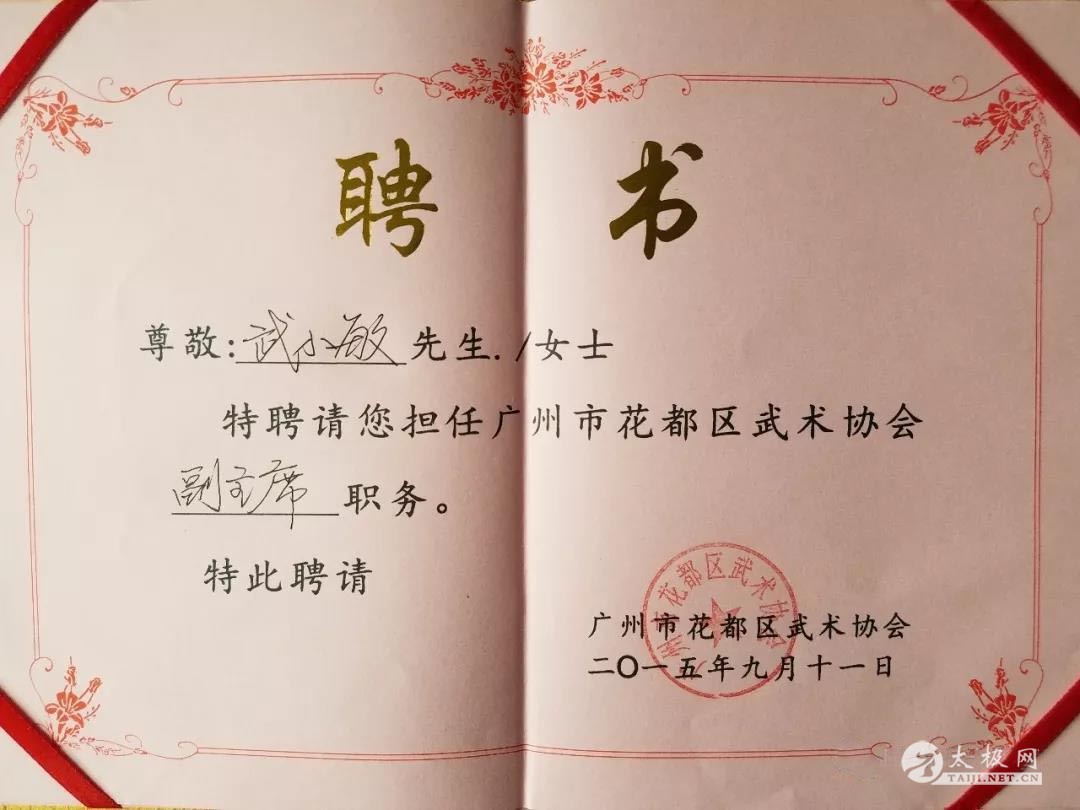 聘书
尊敬:武小敏先生./女士
特聘请您担任广州市花都区武术协会
副主席职务。
特此聘请
广州市花都区武术协会
广州市花都区武术协会
二〇一五年九月十一日
太极网
TAIJI.NET.CN